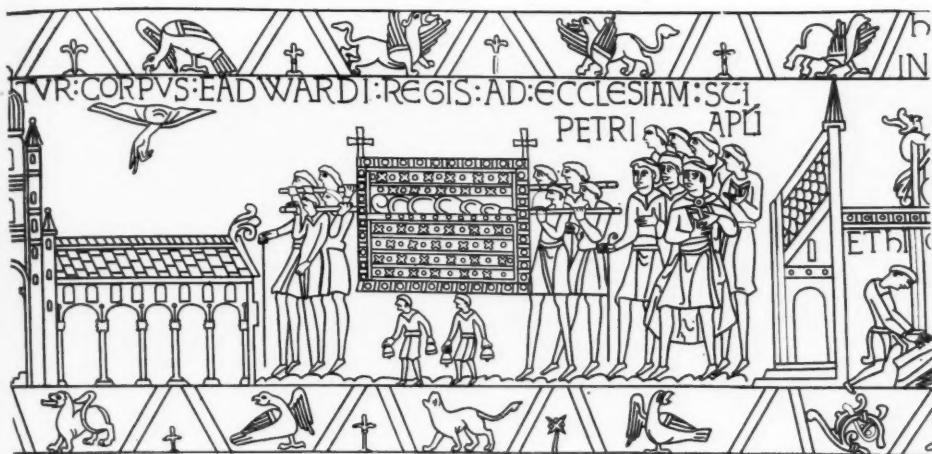 TVR:CORPVS:EADWARDI:REGIS:AD:ECCLESIAM:SCI
PETRI APLI
h
IN
EThIC